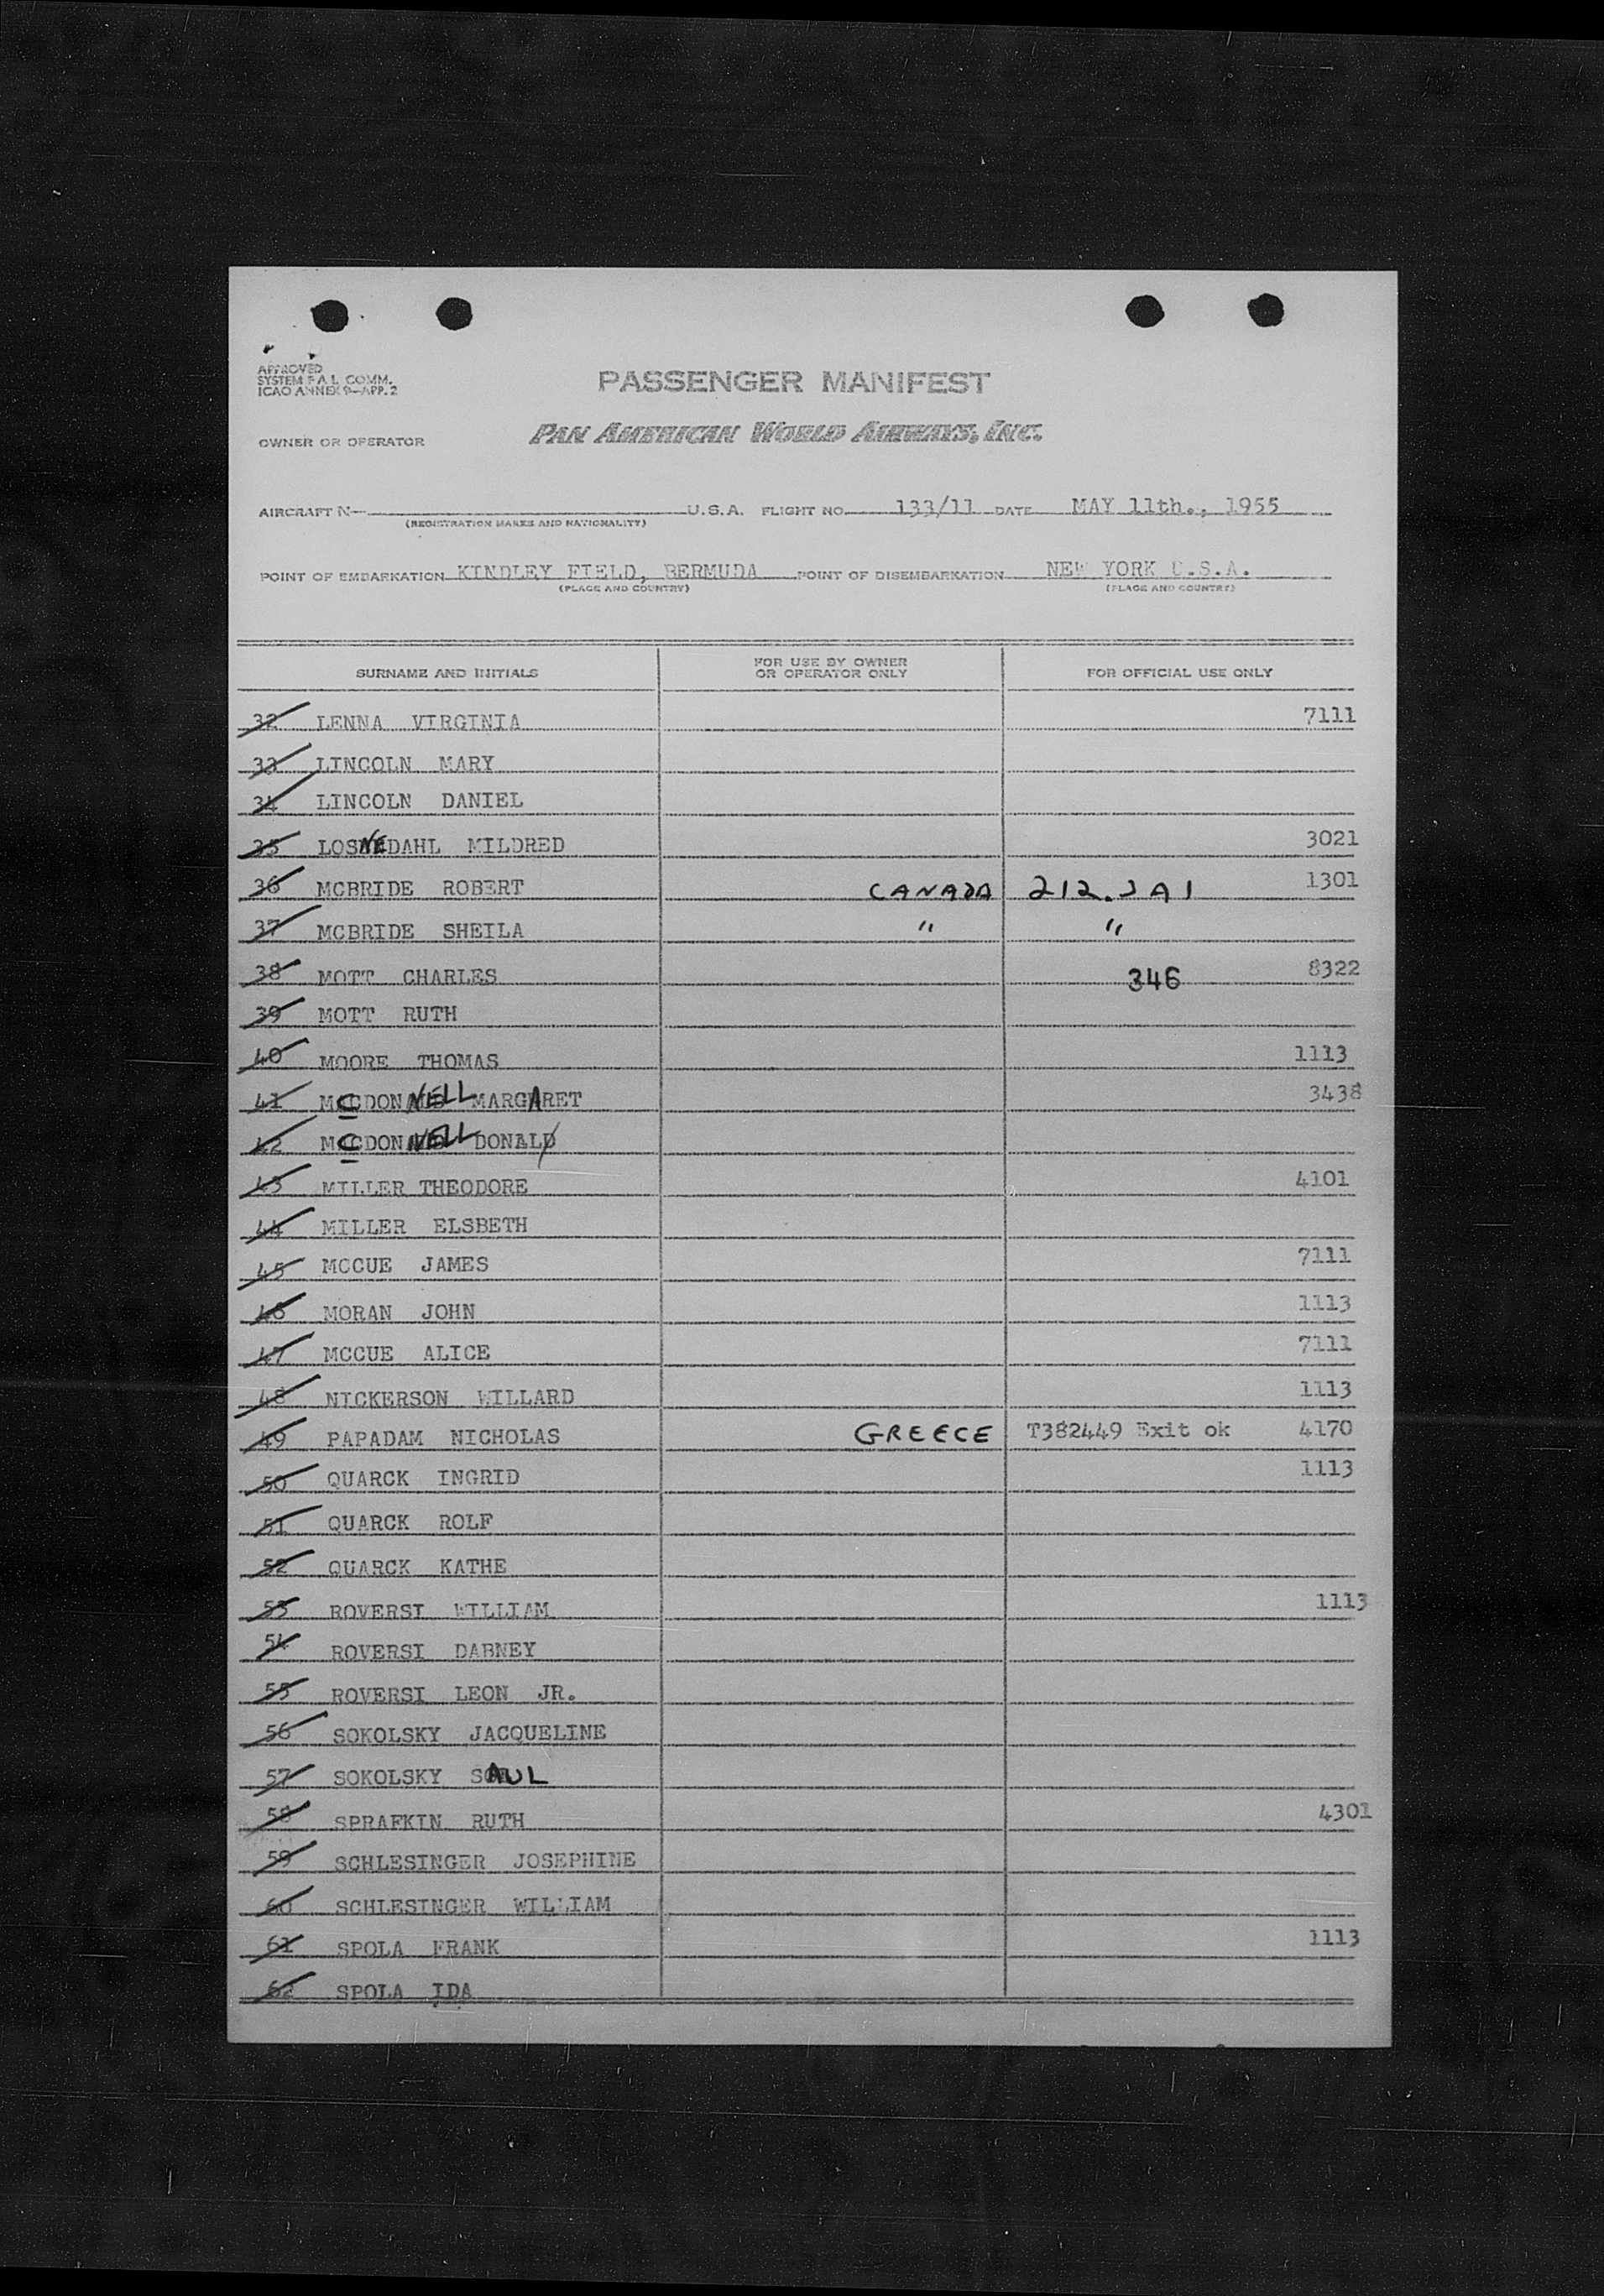 APPROVED
SYSTEM F.A.L. COMM.
ICAO ANNEX 9—APP. 2
PASSENGER MANIFEST
OWNER OR OPERATOR PAN AMERICAN WORLD AIRWAYS, INC.
AIRCRAFT N— U.S.A. FLIGHT NO. 133/11 DATE MAY 11th., 1955
(REGISTRATION MARKS AND NATIONALITY)
POINT OF EMBARKATION KINDLEY FIELD, BERMUDA POINT OF DISEMBARKATION NEW YORK U.S.A.
(PLACE AND COUNTRY) (PLACE AND COUNTRY)
SURNAME AND INITIALS FOR USE BY OWNER OR OPERATOR ONLY FOR OFFICIAL USE ONLY
32 LENNA VIRGINIA 7111
33 LINCOLN MARY
34 LINCOLN DANIEL
35 LOSNEDAHL MILDRED 3021
36 MCBRIDE ROBERT CANADA 212.JA1 1301
37 MCBRIDE SHEILA " "
38 MOTT CHARLES 346 8322
39 MOTT RUTH
40 MOORE THOMAS 1113
41 MCDONNELL MARGARET 3438
42 MCDONNELL DONAL
43 MILLER THEODORE 4101
44 MILLER ELSBETH
45 MCCUE JAMES 7111
46 MORAN JOHN 1113
47 MCCUE ALICE 7111
48 NICKERSON WILLARD 1113
49 PAPADAM NICHOLAS GREECE T382449 Exit ok 4170
50 QUARCK INGRID 1113
51 QUARCK ROLF
52 QUARCK KATHE
53 ROVERSI WILLIAM 1113
54 ROVERSI DABNEY
55 ROVERSI LEON JR.
56 SOKOLSKY JACQUELINE
57 SOKOLSKY SAUL
58 SPRAFKIN RUTH 4301
59 SCHLESINGER JOSEPHINE
60 SCHLESINGER WILLIAM
61 SPOLA FRANK 1113
62 SPOLA IDA